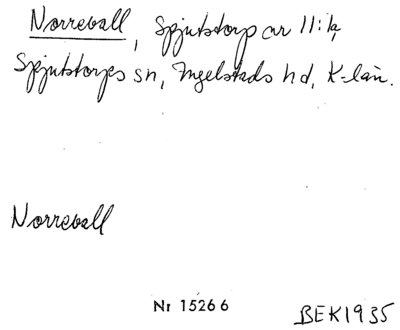 Norrevall, Spjutstorp nr 11:4,
Spjutstorps sn, Ingelstads hd, K-län.
Norrevall
Nr 15266
BEK1935